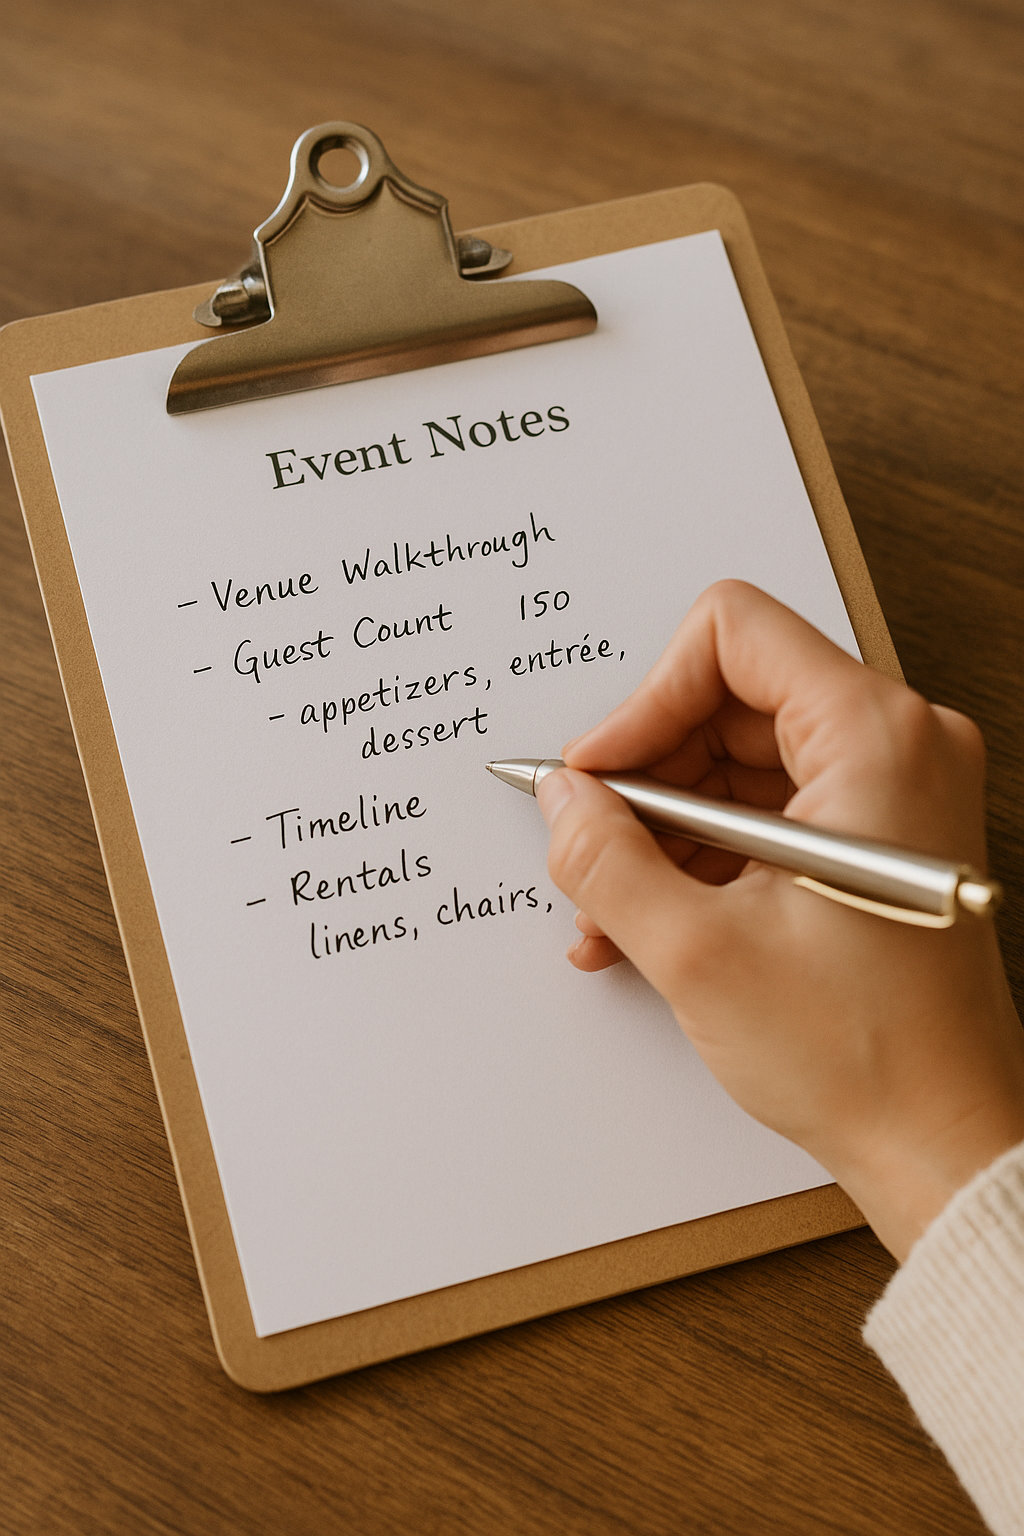 Event Notes
– Venue Walkthrough
– Guest Count 150
– appetizers, entrée,
dessert
– Timeline
– Rentals
linens, chairs,